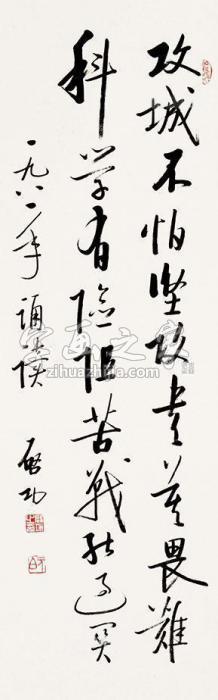 攻城不怕坚攻书莫畏難
科学有险阻苦战能过关
一九八一年 诵读 启功
字画之家
www.zihuazhijia.com